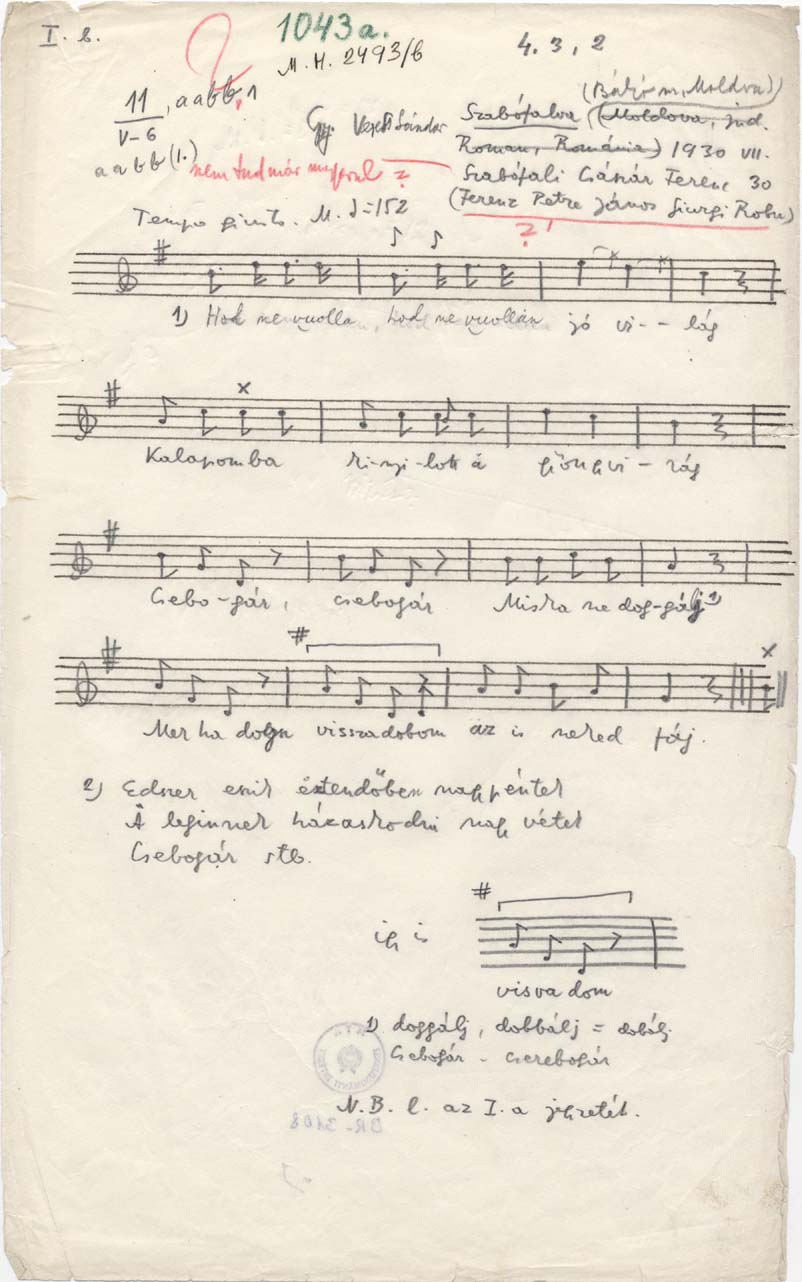 I. b.
1043a.
M. H. 2493/b
4. 3, 2
11 , aabb, 1
V-6
aabb(1.)
nem tud már magyarul ?
Gy. Veress Sándor
(Bákó m., Moldva)
Szabófalva (Moldova, jud.
Roman, Románia) 1930 VII.
Szabófali Császár Ferenc 30
(Ferenz Petre János Giurgi Robu)
? !
Tempo giusto. M. ♩=152
1) Hod ne vuolla, hod ne vuollán jó vi - - lág
Kalapomba ri-nyi-lott á gyöngyvi - rág
Csebo-gár, csebogár Miska ne dog-gálj 1)
Mer ha dobsz visszadobom áz is neked fáj.
2) Edszer esik esztendőben nagypéntek
Á leginnek házaskodni nagy vétek
Csebogár stb.
így is
visva dom
1) doggálj, dobbálj = dobálj
Csebogár - cserebogár
N.B. l. az I.a jegyzetét.
BR-3108